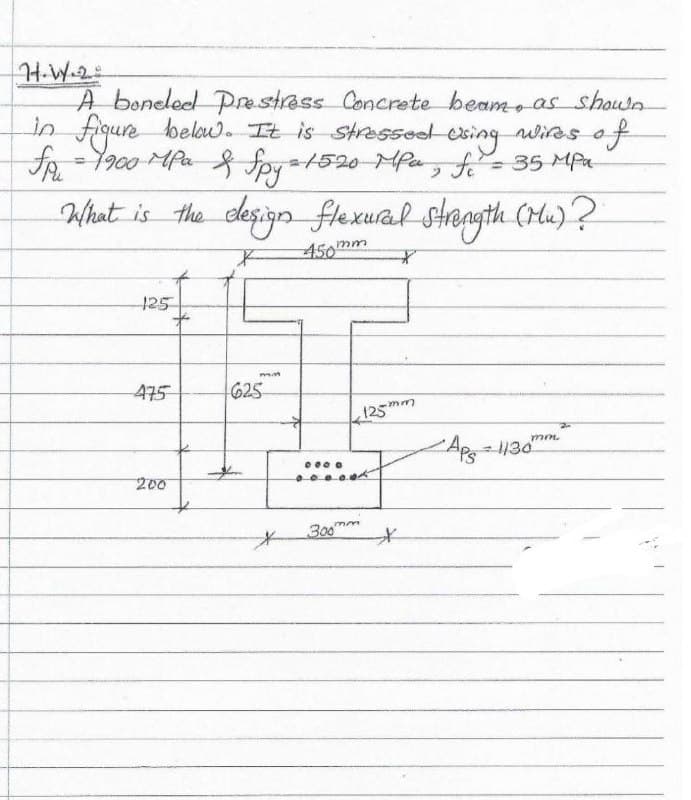 H.W.2:
A bonded Prestress Concrete beam, as shown
in figure below. It is stressed using wires of
fpu = 1900 MPa & fpy = 1520 MPa, fc' = 35 MPa
What is the design flexural strength (Mu)?
450mm
125
475
625mm
125mm
Aps = 1130mm²
200
300mm